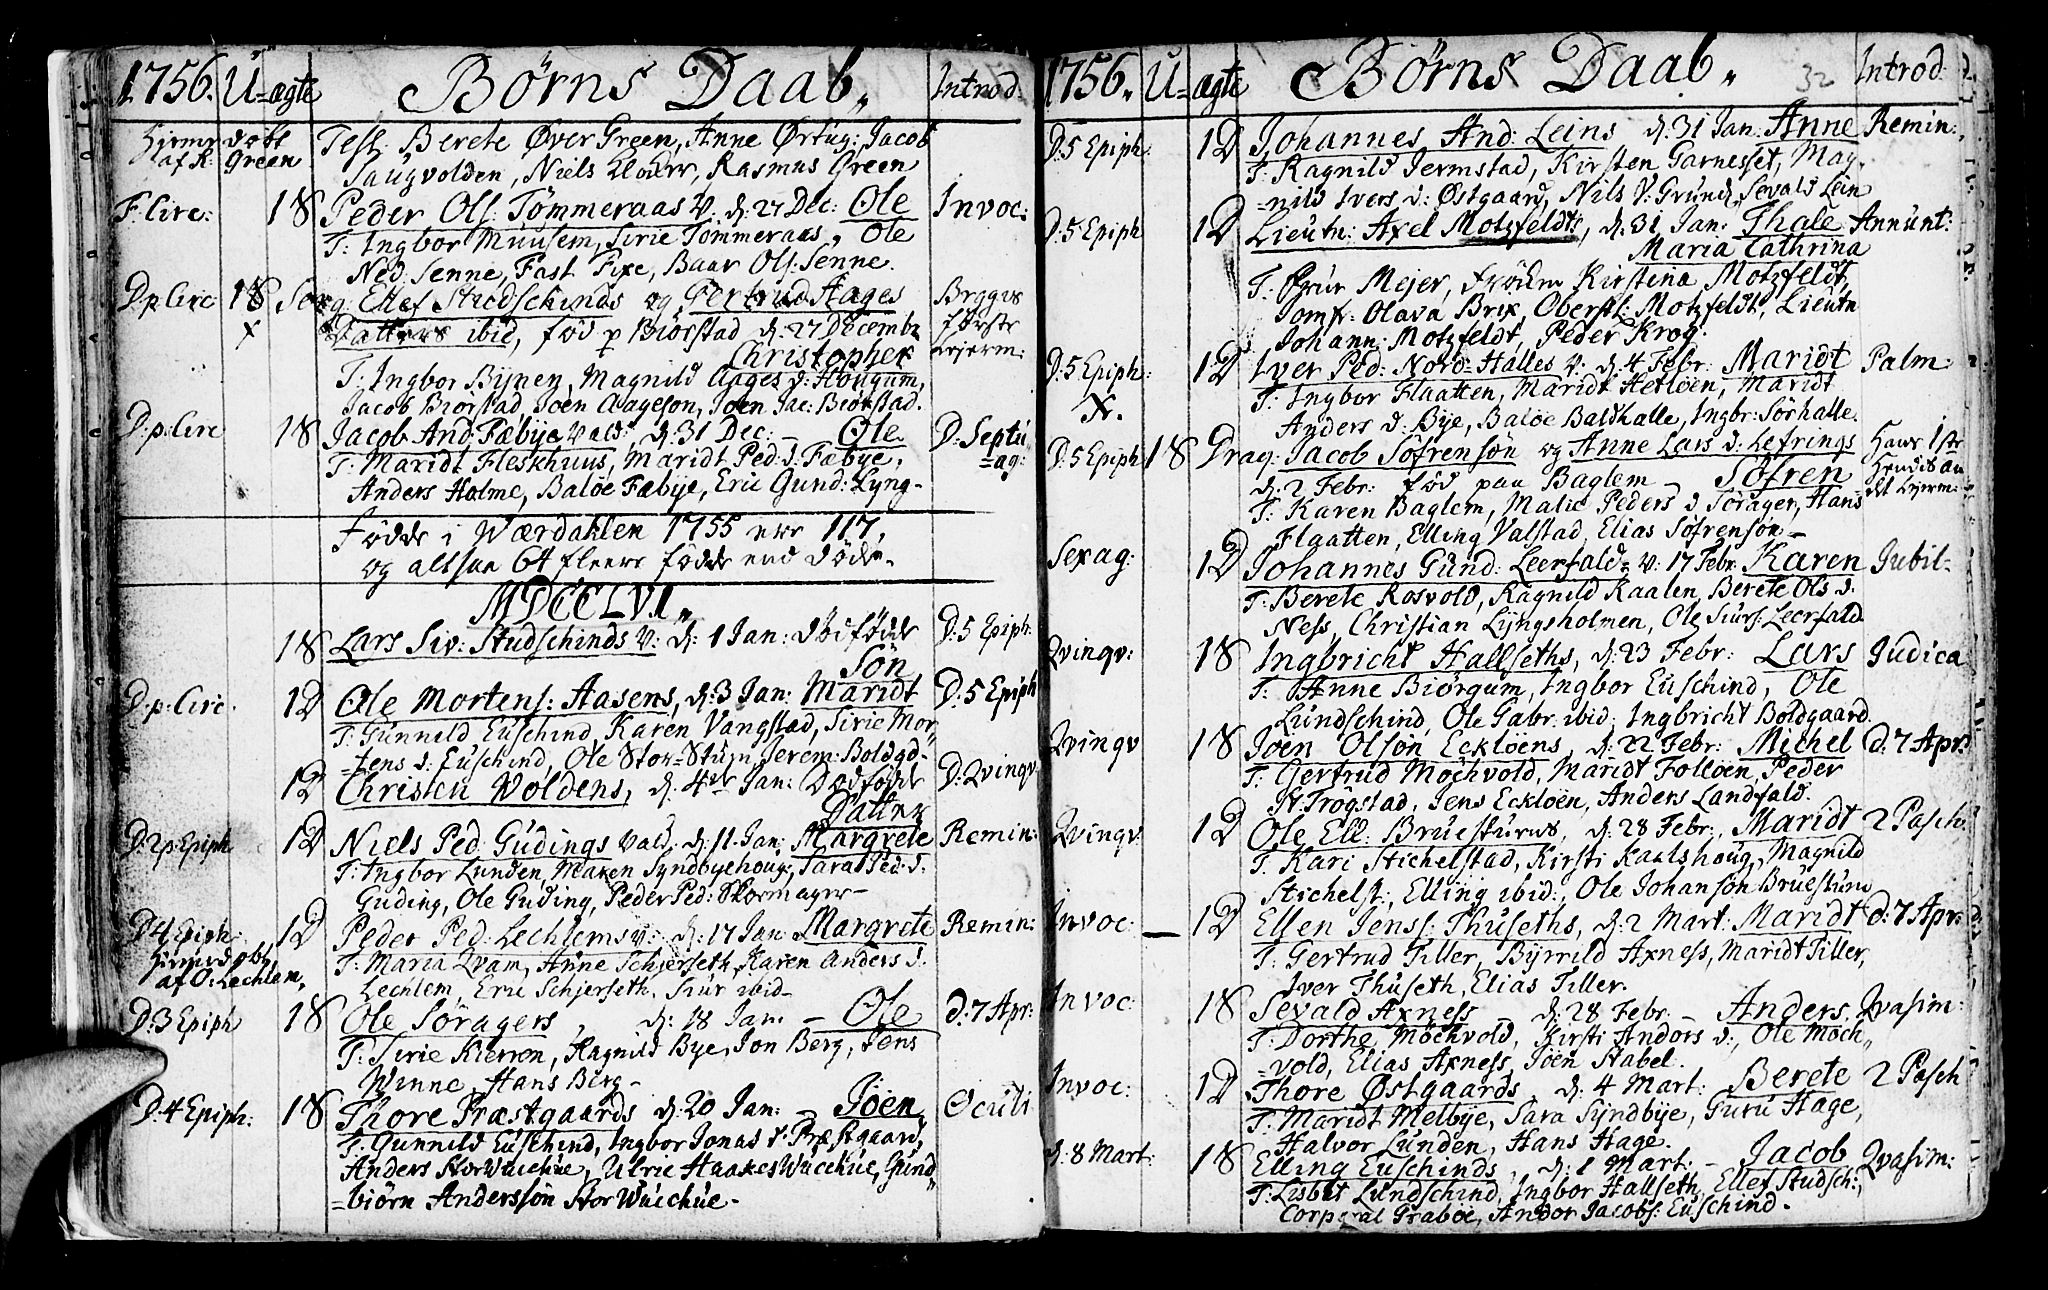 1756. U= ægte Børns Daab. Introd.
Hjemedøbt af R: Green Test: Berete Øver Green, Anne Ørtug; Jacob
Saugvolden, Niels Rasmus Green
F. Circ: 1 S Peder Ols: Tømmeraas V. d: 27 Dec: Ole Invoc:
T: Ingbor Muusem, Sirie Tømmeraas, Ole
Ned Senne, Fast Fixe, Baar Ols: Senne.
D. p. Circ 1 S Serg: Ellef Studschinds og Gertrud Hages Begges
x Datters ibid, fød p Biørstad d: 27 Decembr første
Christopher Lejerm:
T: Ingbor Bijnen, Magnild Aages d: Hougum,
Jacob Biørstad, Joen Aageson, Joen Jac: Biørstad.
D: p: Circ 1 S Jacob And: Fæbye Vald: d: 31 Dec: — Ole D: Septu
T: Maridt Fleskhuus, Maridt Ped: d: Fæbye, =ag:
Anders Holme, Baloe Fæbije, Eric Gund: Lyng-
Fødde i Værdahlen 1755 ere 117,
og altsaa 64 fleere fødde end døde.
MDCCLVI.
1 S Lars Siv: Studschinds V: d: 1 Jan: Dødfødde D: 5 Epiph:
Søn
D. p. Circ. 1 D Ole Mortens: Aasens, d: 3 Jan: Maridt D: 5 Epiph
T: Gunnild Euschind, Karen Vangstad, Sirie Mor-
=tens d: Euschind, Ole Stor=Stuen, Jerem: Boldgd-
1 D Christen Voldens, d: 4de Jan: Dødfødde D: Qvinqv.
Datter
D. 2 p. Epiph 1 D Niels Ped: Gudings Vald, d: 11. Jan: Margrete Remin:
T: Ingbor Lunden, Maren Syndbyehoug, Sara Ped: d:
Guding, Ole Guding, Peder Ped: Skormager-
D. 4 Epiph: 1 D Peder Ped: Lechlems V: d: 17 Jan: Margrete Remin:
Hjemedøbt T: Maria Qvam, Anne Schjerseth, Karen Anders d:
af O: Lechlem, Lechlem, Eric Schjerseth, Siur ibid-
D: 3 Epiph 1 S Ole Søragers, d: 18 Jan: — Ole d: 7 Apr:
T: Sirie Kierren, Hagnild Bye, Jon Berg, Jens
Winne, Hans Berg-
D: 4 Epiph: 1 S Thore Præstgaards d: 20 Jan: — Joen Oculi
T: Gunnild Euschind, Ingbor Jonas d: Præstgaard,
Anders StorWuichue, Ulric HaakesWuichue, Gund
=biørn Andersson StorWuichue-
1756. U= ægte Børns Daab. 32 Introd:
D: 5 Epiph: 1 D Johannes And: Leins d: 31 Jan: Anne Remin:
T: Ragnild Jermstad, Kirsten Garnesset, Mag-
=nild Ivers d: Østgaard, Nils V: Grund, Sevald Lein
D: 5 Epiph 1 D Lieutn: Axel Motzfeldts, d: 31 Jan: Thale Annunt:
Maria Cathrina
T: Fruer Mejer, Frøiken Kirstina Motzfeldt,
Jomfr: Olava Brix, Oberstl: Motzfeldt, Lieutn
Johann: Motzfeldt, Peder Krog.
D: 5 Epiph: 1 D Iver Ped: Nord-Halles V. d: 4 Febr: Maridt Palm:
X. T: Ingbor Flaatten, Maridt Hetløen, Maridt
Anders d: Bye, Baloe Baldhalle, Ingbr: Sørhalle.
D: 5 Epiph 1 S Drag: Jacob Søfrensøn og Anne Lars d: Lefrings Hans 1ste
d: 2 Febr: fød paa Baglem Søfren Hendes an
T: Karen Baglem, Malie Peders d Sørager, Hans det Lejerm:
Flaatten, Elling Valstad, Elias Søfrensøn-
Sexag: 1 D Johannes Gund: Leerfald V: 17 Febr: Karen Jubil-
T: Berete Rosvold, Ragnild Kaalen, Berete Ols d:
Ness, Christian Lyngsholmen, Ole Siurs: Leerfald
Qvinqv: 1 S Ingbricht Hallseths, d: 23 Febr: Lars Judica
T: Anne Biørgum, Ingbor Euschind, Ole
Lundschind, Ole Gabr: ibid; Ingbricht Boldgaard.
Qvinqv 1 S Joen Olsøn Eckløens, d: 22 Febr: Michel d: 7 Apr:
T: Gertrud Mochvold, Maridt Folloen, Peder
St: Trøgstad, Jens Eckloen, Anders Landfald.
Qvinqv: 1 D Ole Ell: Bruesturns, d: 28 Febr: Maridt 2 Pasch:
T: Kari Stichelstad, Kirsti Karlshoug, Magnild
Stichelst:, Elling ibid:, Ole Johansøn Bruestuen
Invoc: 1 D Ellen Jenss: Thuseths, d: 2 Mart: Maridt d: 7 Apr:
T: Gertrud Tiller, Byrrild Axness, Maridt Tiller,
Iver Thuseth, Elias Tiller.
Invoc: 1 S Sevald Axness — d: 28 Febr: — Anders Qvasim:
T: Dorthe Mochvold, Kirsti Andors d:, Ole Moch-
=vold, Elias Axness, Joen Stabel.
Invoc: 1 D Thore Østgaards d: 4 Mart: Berete 2 Pasch
T: Maridt Melbye, Sara Syndbye, Guru Hage,
Halvor Lunden, Hans Hage.
d: 8 Mart: 1 S Elling Euschinds, d: 1 Mart: — Jacob Qvasim:
T: Lisbet Lundschind, Ingbor Hallseth, Ellef Studsch:,
Corporal Graboe, Andor Jacobs: Euschind.